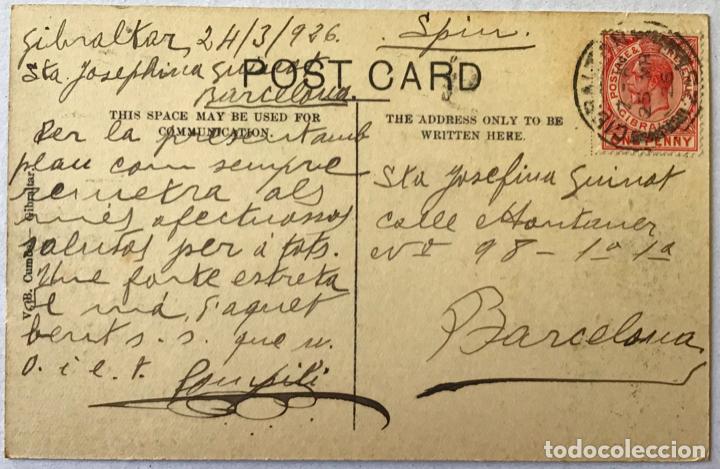 Gibraltar, 24/3/926.
Sta Josephina Guinot
Barcelona.
Spin
POST CARD
THIS SPACE MAY BE USED FOR
COMMUNICATION.
THE ADDRESS ONLY TO BE
WRITTEN HERE.
Per la present amb
plau com sempre
remetra als
més afectuosos
salutos per a tots.
Une forte estreta
de má, d'aquet
s. s. que u.
o. i e. t.
Pompili
Sta Josefina Guinot
calle Montaner
No 98 - 1o 1a
Barcelona
V. B. Cumbo, - Gibraltar.
POSTAGE & REVENUE
GIBRALTAR
ONE PENNY
GIBRALTAR
todocoleccion